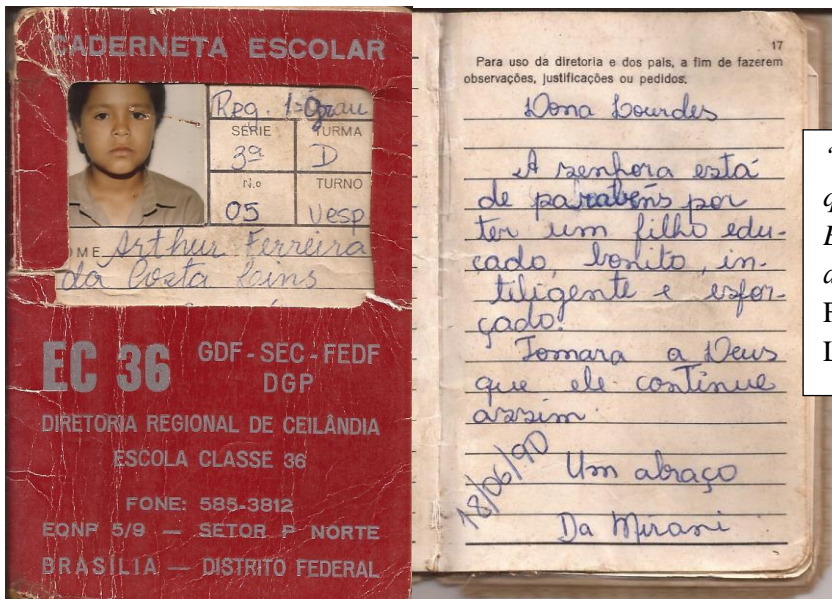 CADERNETA ESCOLAR
Reg. 1º Grau
SÉRIE TURMA
3ª D
N.o TURNO
05 Vesp
OME Arthur Ferreira
da Costa Lins
EC 36
GDF - SEC - FEDF
DGP
DIRETORIA REGIONAL DE CEILÂNDIA
ESCOLA CLASSE 36
FONE: 585-3812
EQNP 5/9 — SETOR P NORTE
BRASÍLIA — DISTRITO FEDERAL
17
Para uso da diretoria e dos pais, a fim de fazerem
observações, justificações ou pedidos.
Dona Lourdes
A senhora está
de parabéns por
ter um filho edu-
cado, bonito, in-
tiligente e esfor-
çado!
Tomara a Deus
que ele continue
assim.
18/06/90
Um abraço
Da Mirani